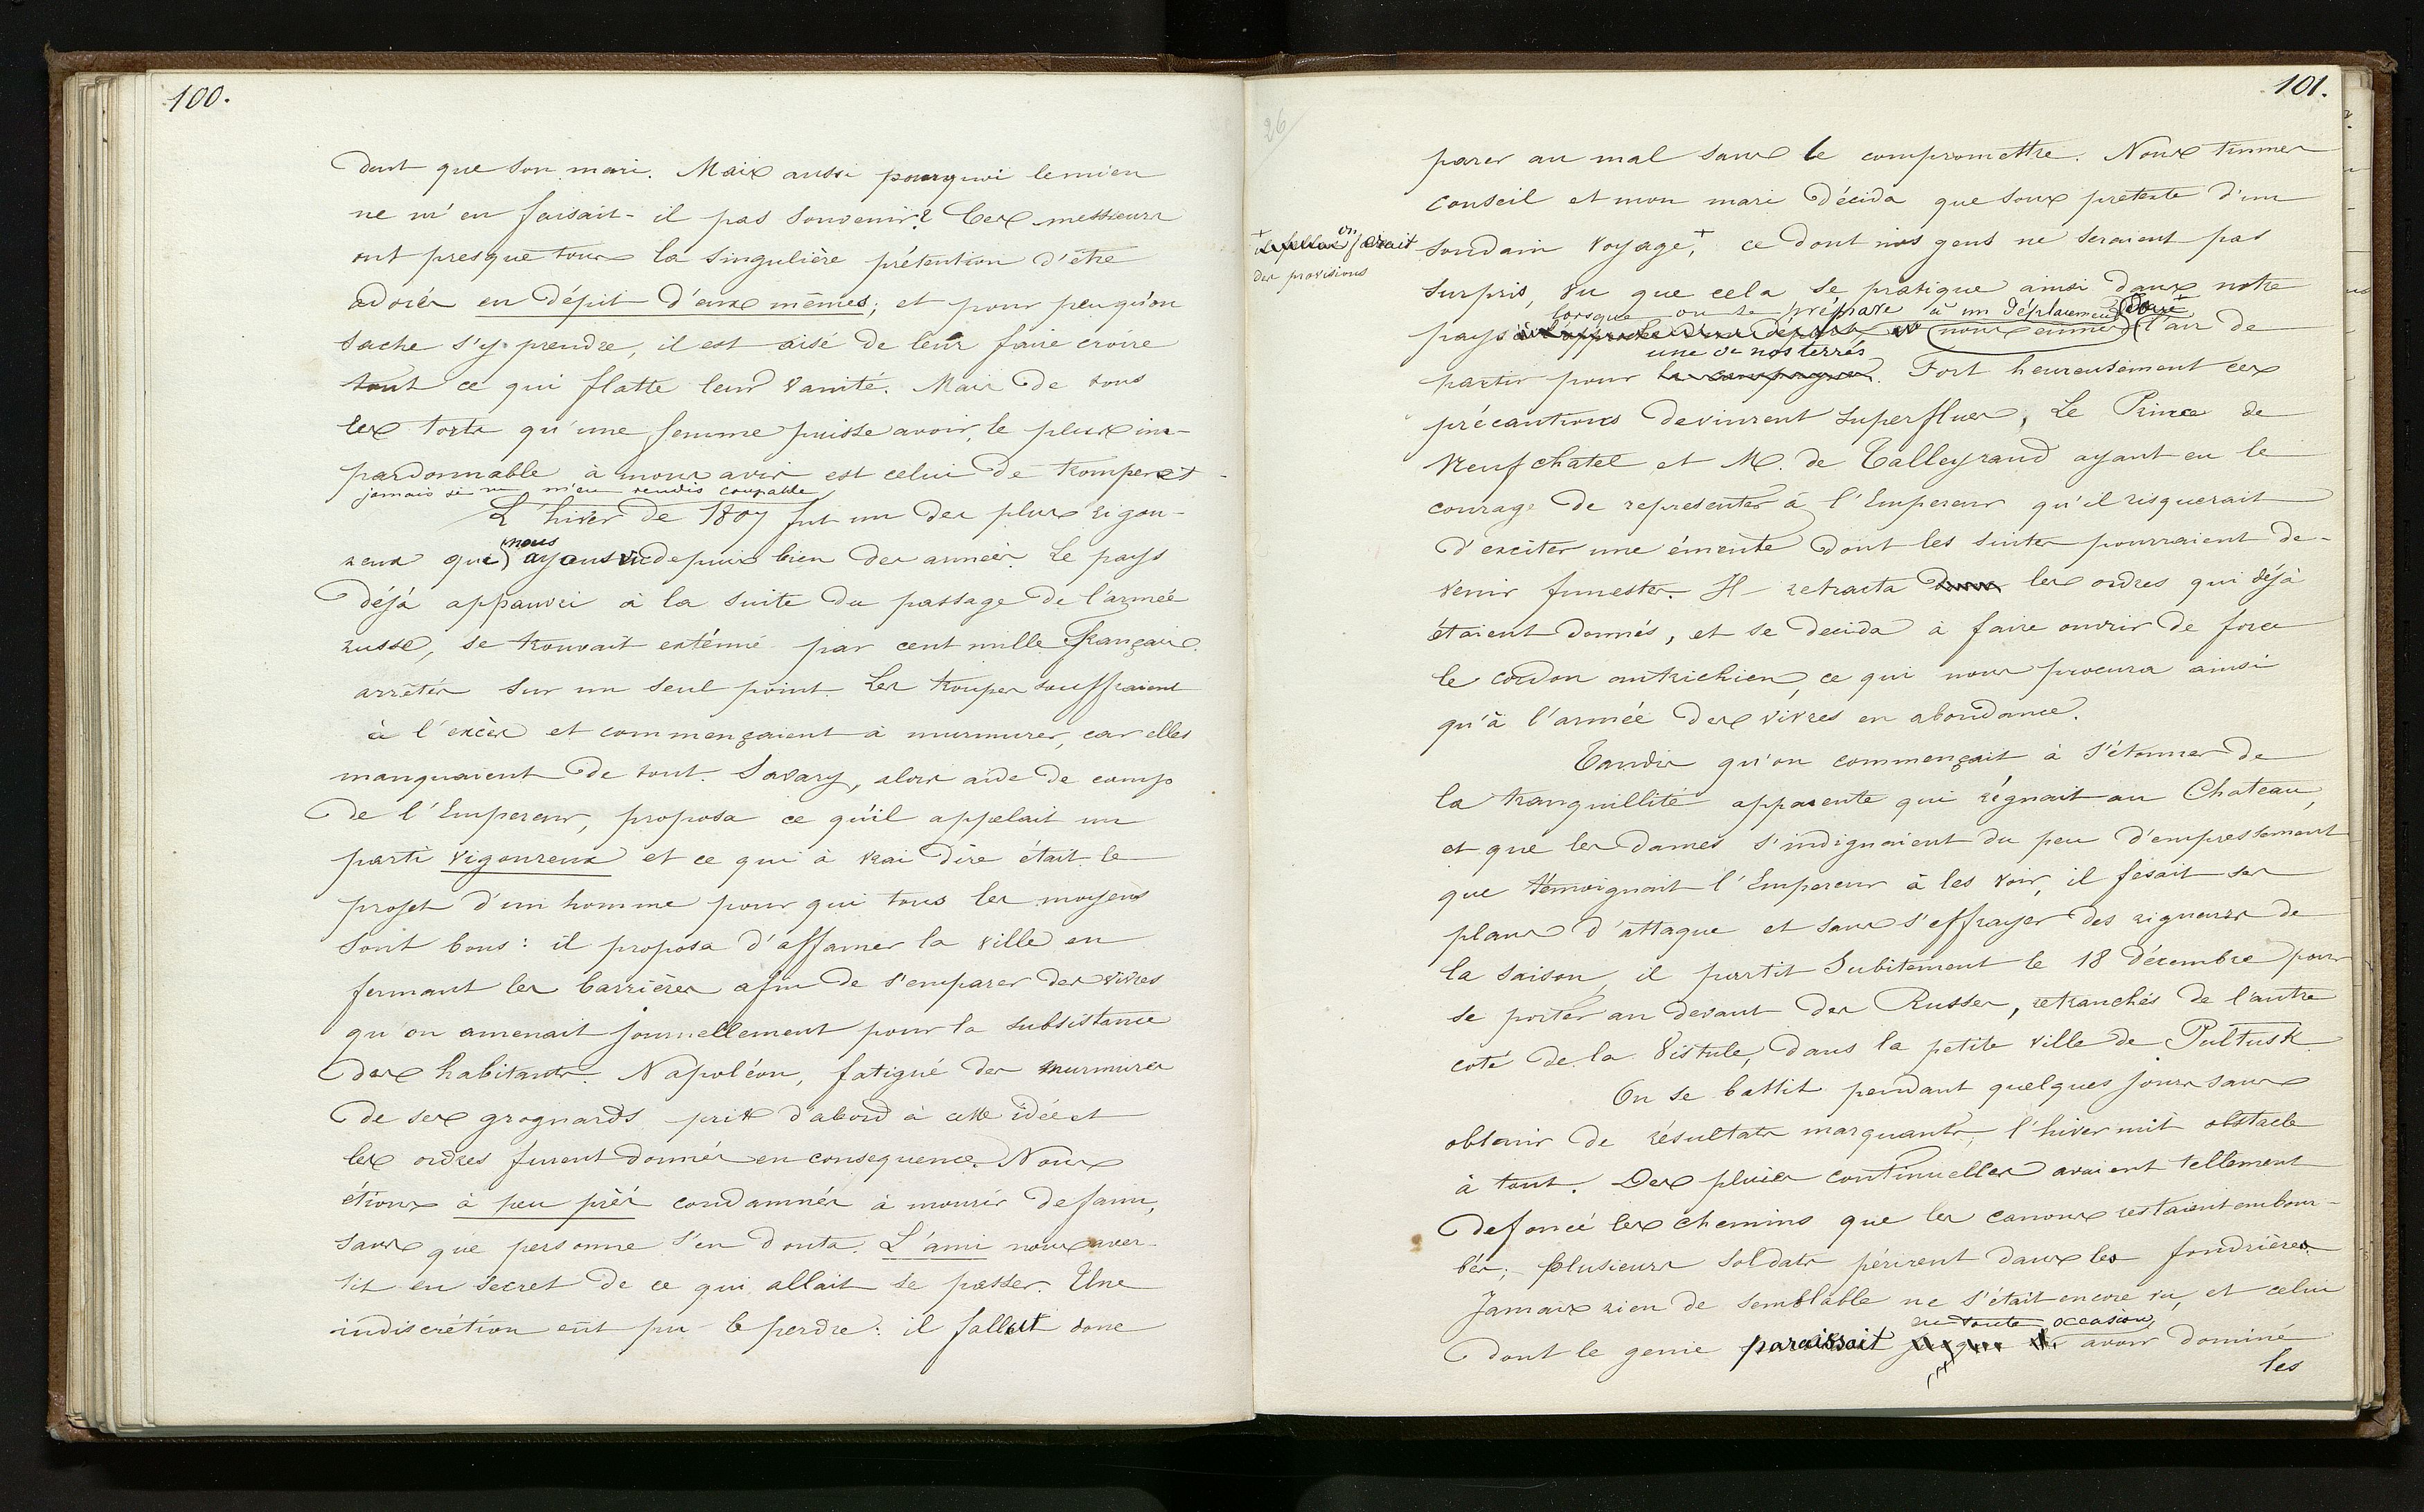 100.
dant que son mari. Mais aussi pourquoi le mien
ne m'en faisait-il pas souvenir? Ces messieurs
ont presque tous la singulière prétention d'être
adorés en dépit d'eux mêmes; et pour peu qu'on
sache s'y prendre, il est aisé de leur faire croire
tout ce qui flatte leur vanité. Mais de tous
les torts qu'une femme puisse avoir, le plus im-
pardonnable à mon avis est celui de tromper et
jamais je ne m'en rendis coupable
L'hiver de 1807 fut un des plus rigou-
reux que nous ayons vu depuis bien des années. Le pays
déjà appauvri à la suite du passage de l'armée
russe, se trouvait exténué par cent mille Français
arrêtés sur un seul point. Les troupes souffraient
à l'excès et commençaient à murmurer, car elles
manquaient de tout. Savary, alors aide de camp
de l'Empereur, proposa ce qu'il appelait un
parti vigoureux et ce qui à vrai dire était le
projet d'un homme pour qui tous les moyens
sont bons: il proposa d'affamer la ville en
fermant les barrières afin de s'emparer des vivres
qu'on amenait journellement pour la subsistance
des habitants. Napoléon, fatigué des murmures
de ses grognards prit d'abord à cette idée et
les ordres furent donnés en consequence. Nous
étions à peu près condamnés à mourir de faim,
sans que personne s'en douta. L'ami nous aver-
tit en secret de ce qui allait se passer. Une
indiscrétion eût pu le perdre: il fallut donc
26
101.
parer au mal sans le compromettre. Nous tinmes
conseil et mon mari décida que sous prétexte d'un
soudain voyage,+ ce dont nos gens ne seraient pas
+ on ferait
des provisions
surpris, vu que cela se pratique ainsi dans notre
lorsque on se prépare à un déplacement
pays à l'approche d'un départ et nous eumes l'air de
une de nos terres
partir pour la campagne. Fort heureusement ces
précautions devinrent superflues, Le Prince de
Neufchatel et M. de Talleyrand ayant eu le
courage de representer à l'Empereur qu'il risquerait
d'exciter une émeute dont les suites pourraient de-
venir funestes. Il retracta les ordres qui déjà
étaient donnés, et se decida à faire ouvrir de force
le cordon autrichien, ce qui nous procura ainsi
qu'à l'armée des vivres en abondance.
Tandis qu'on commençait à s'étonner de
la tranquillité apparente qui régnait au Chateau,
et que les dames s'indignaient du peu d'empressement
que témoignait l'Empereur à les voir, il fesait ses
plans d'attaque et sans s'effrayer des rigueurs de
la saison, il partit subitement le 18 décembre pour
se porter au devant des Russes, retranchés de l'autre
coté de la Vistule, dans la petite ville de Pultusk
On se battit pendant quelques jours sans
obtenir de résultats marquants, l'hiver mit obstacle
à tout. Des pluies continuelles avaient tellement
defoncé les chemins que les canons restaient embour-
bés; plusieurs soldats périrent dans les fondrières
Jamais rien de semblable ne s'était encore vu, et celui
en toute occasion
dont le genie paraissait avoir dominé
les